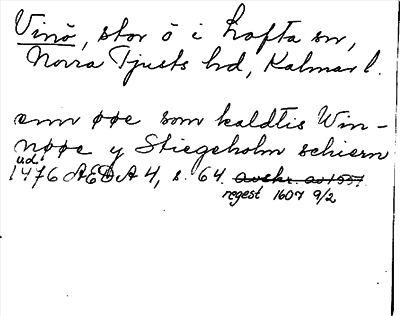 Vinö, stor ö i Lofta sn,
Norra Tjusts hd, Kalmar l.
enn øøe som kaldtis Win-
nøøe y Stiegeholm schiern
ud.
1476 ÆDA 4, s. 64. avskr. av 1551.
regest 1607 9/2